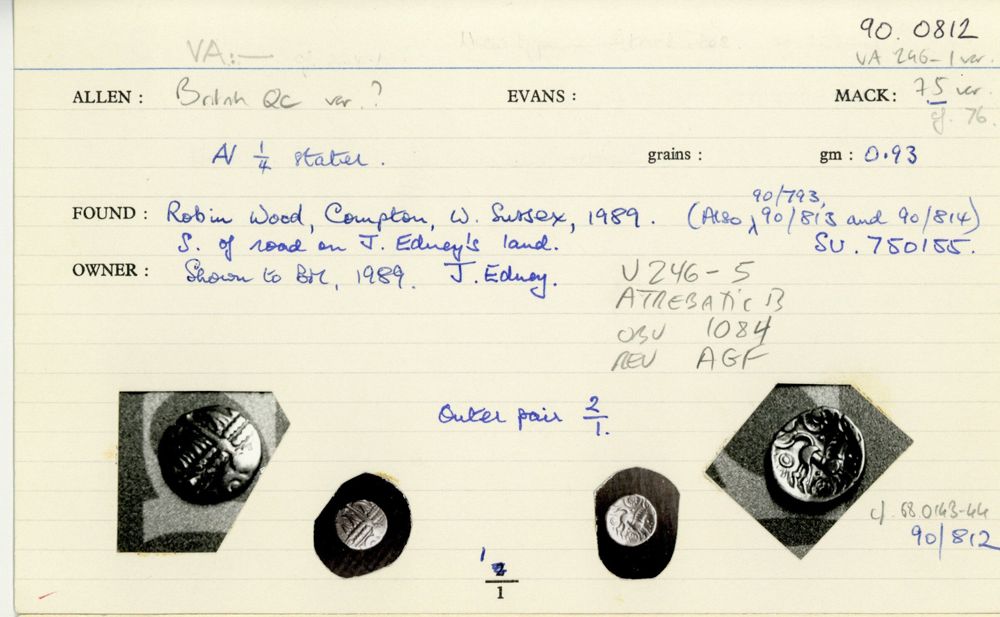 90. 0812
VA:— VA 246-1 var.
ALLEN : British QC var. ? EVANS : MACK: 75 var.
cf. 76.
AV 1/4 stater. grains : gm : 0.93
90/793,
FOUND : Robin Wood, Compton, W. Sussex, 1989. (Also, 90/813 and 90/814)
S. of road on J. Edney's land. SU. 750155.
OWNER : Shown to BM, 1989. J. Edney.
V 246-5
ATREBATIC B
OBV 1084
REV AGF
Outer pair 2/1.
cf. 68.0143-44
90/812
1
1